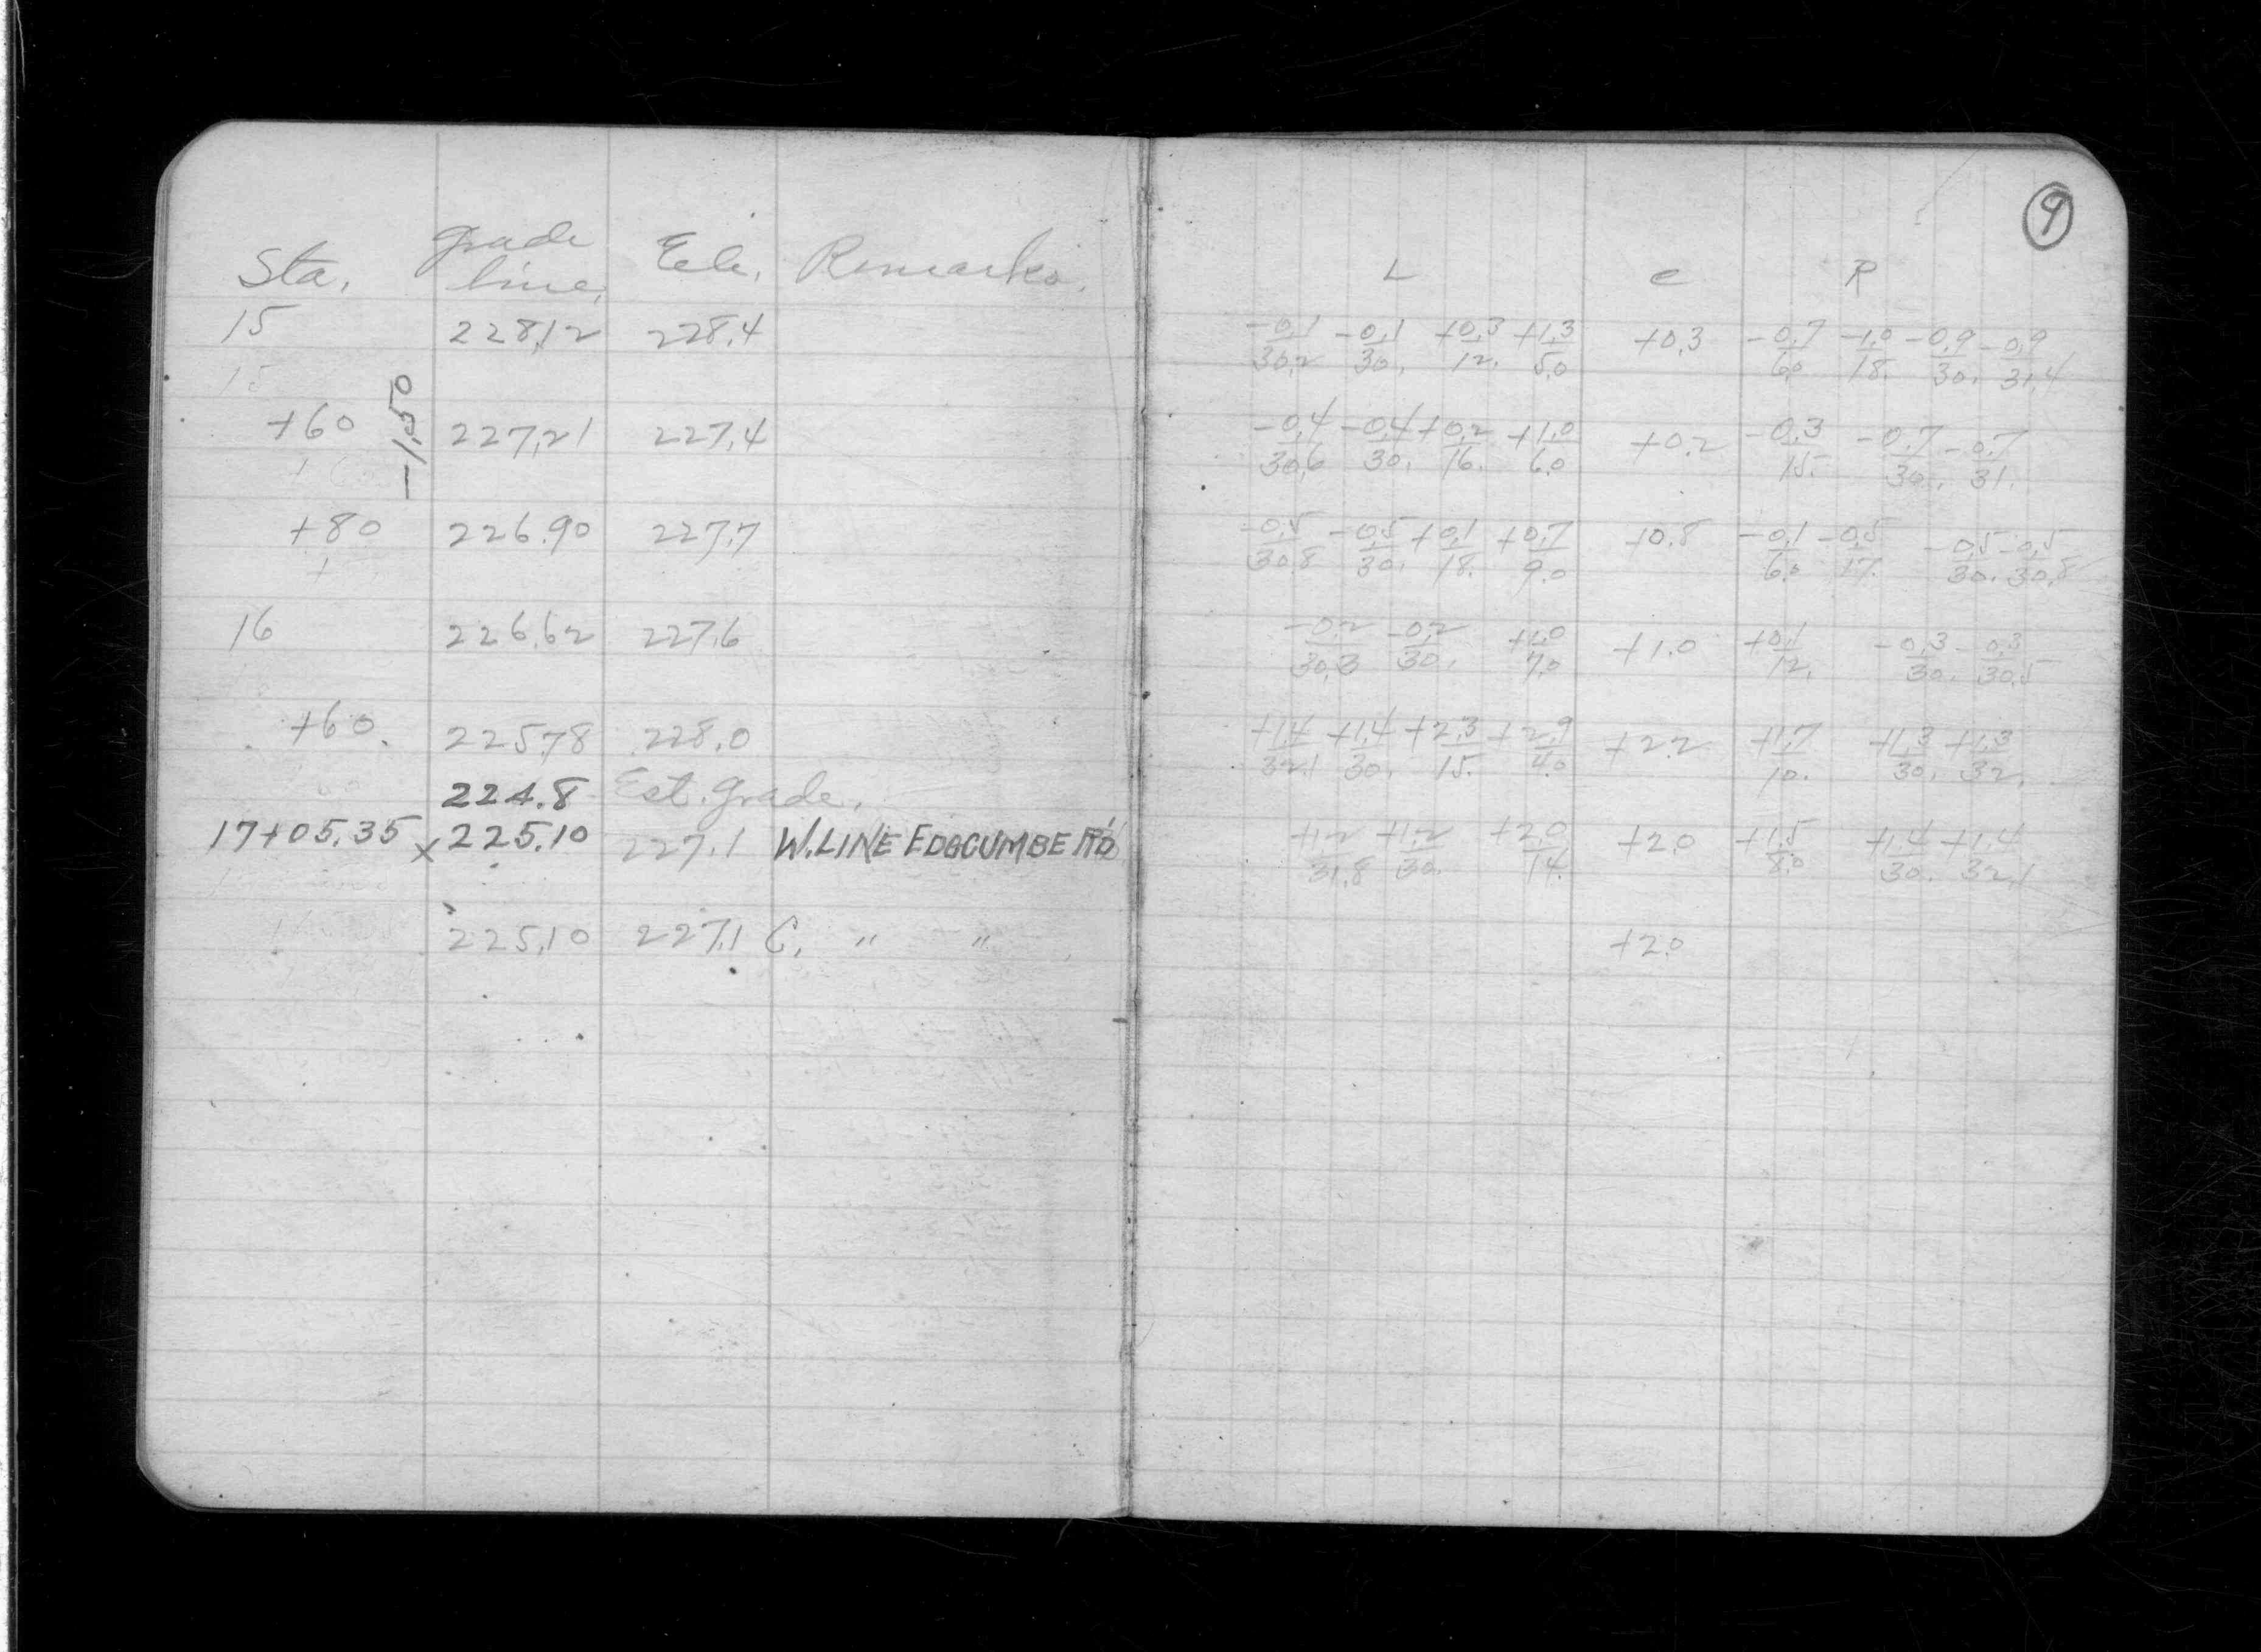 Sta. grade line. Ele. Remarks.
15 228.12 228.4
-1.50
+60 227.21 227.4
+80 226.90 227.7
16 226.62 227.6
+60. 225.78 228.0
224.8 Est. Grade.
17+05.35 x 225.10 227.1 W.LINE EDGCUMBE RD
225.10 227.1 C. " "
9
L c R
-0.1/30.2 -0.1/30. +0.3/12. +1.3/5.0 +0.3 -0.7/6.0 -1.0/18. -0.9/30. -0.9/31.4
-0.4/30.6 -0.4/30. +0.2/16. +1.0/6.0 +0.2 -0.3/15. -0.7/30. -0.7/31.
-0.5/30.8 -0.5/30. +0.1/18. +0.7/9.0 +0.8 -0.1/6.0 -0.5/17. -0.5/30. -0.5/30.8
-0.2/30.3 -0.2/30. +1.0/7.0 +1.0 +0.1/12. -0.3/30. -0.3/30.5
+1.4/32.1 +1.4/30. +2.3/15. +2.9/4.0 +2.2 +1.7/10. +1.3/30. +1.3/32.
+1.2/31.8 +1.2/30. +2.0/14. +2.0 +1.5/8.0 +1.4/30. +1.4/32.1
+2.0